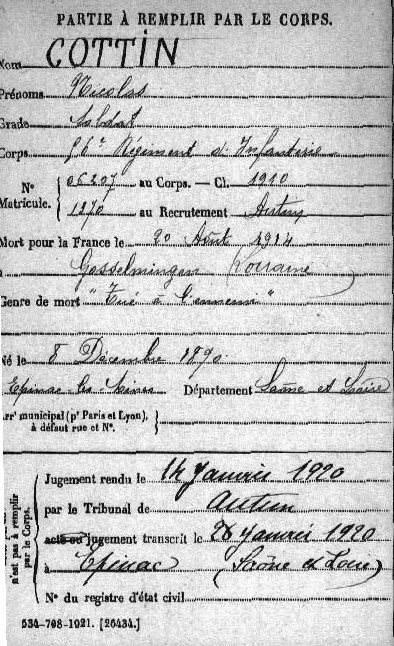 PARTIE À REMPLIR PAR LE CORPS.
Nom COTTIN
Prénoms Nicolas
Grade Soldat
Corps 56e Régiment d'Infanterie
N° Matricule. { 06227 au Corps. — Cl. 1910
1270 au Recrutement Autun
Mort pour la France le 20 Août 1914
à Gosselmingen Lorraine
Genre de mort "Tué à l'ennemi"
Né le 8 Décembre 1890
Epinac les Mines Département Saône et Loire
Arr' municipal (p' Paris et Lyon), à défaut rue et N°. }
n'est pas à remplir par le Corps.
Jugement rendu le 14 Janvier 1920
par le Tribunal de Autun
acte ou jugement transcrit le 26 Janvier 1920
à Epinac (Saône et Loire)
N° du registre d'état civil
534-708-1921. [26434.]